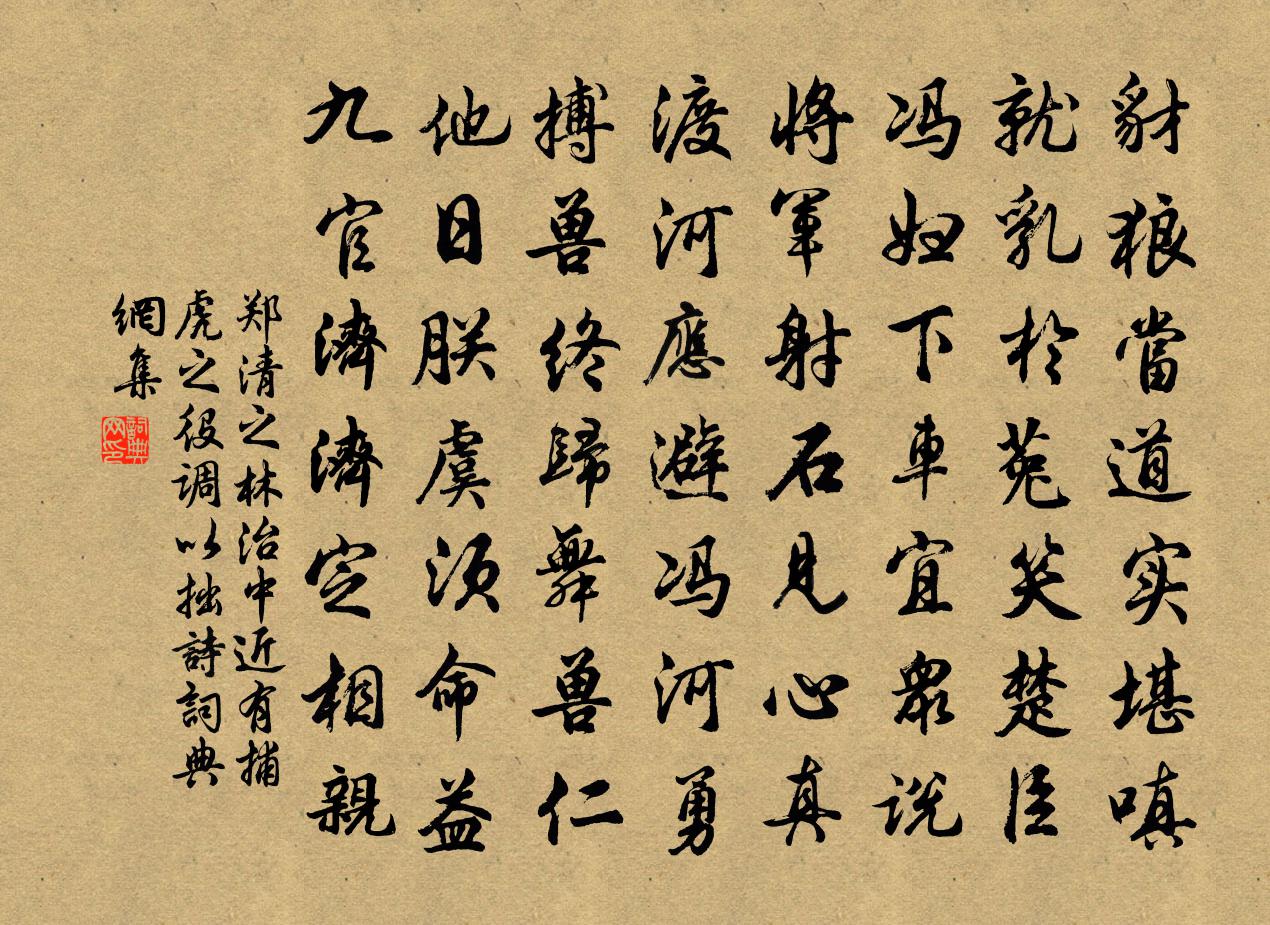 豺狼當道实堪嗔
就乳於菟笑楚臣
冯妇下車宜眾说
將軍射石見心真
渡河應避冯河勇
搏兽终歸舞兽仁
他日朕虞须命益
九官濟濟定相親
郑清之林治中近有捕
虎之役调以拙詩詞典
網集
詞典
网印